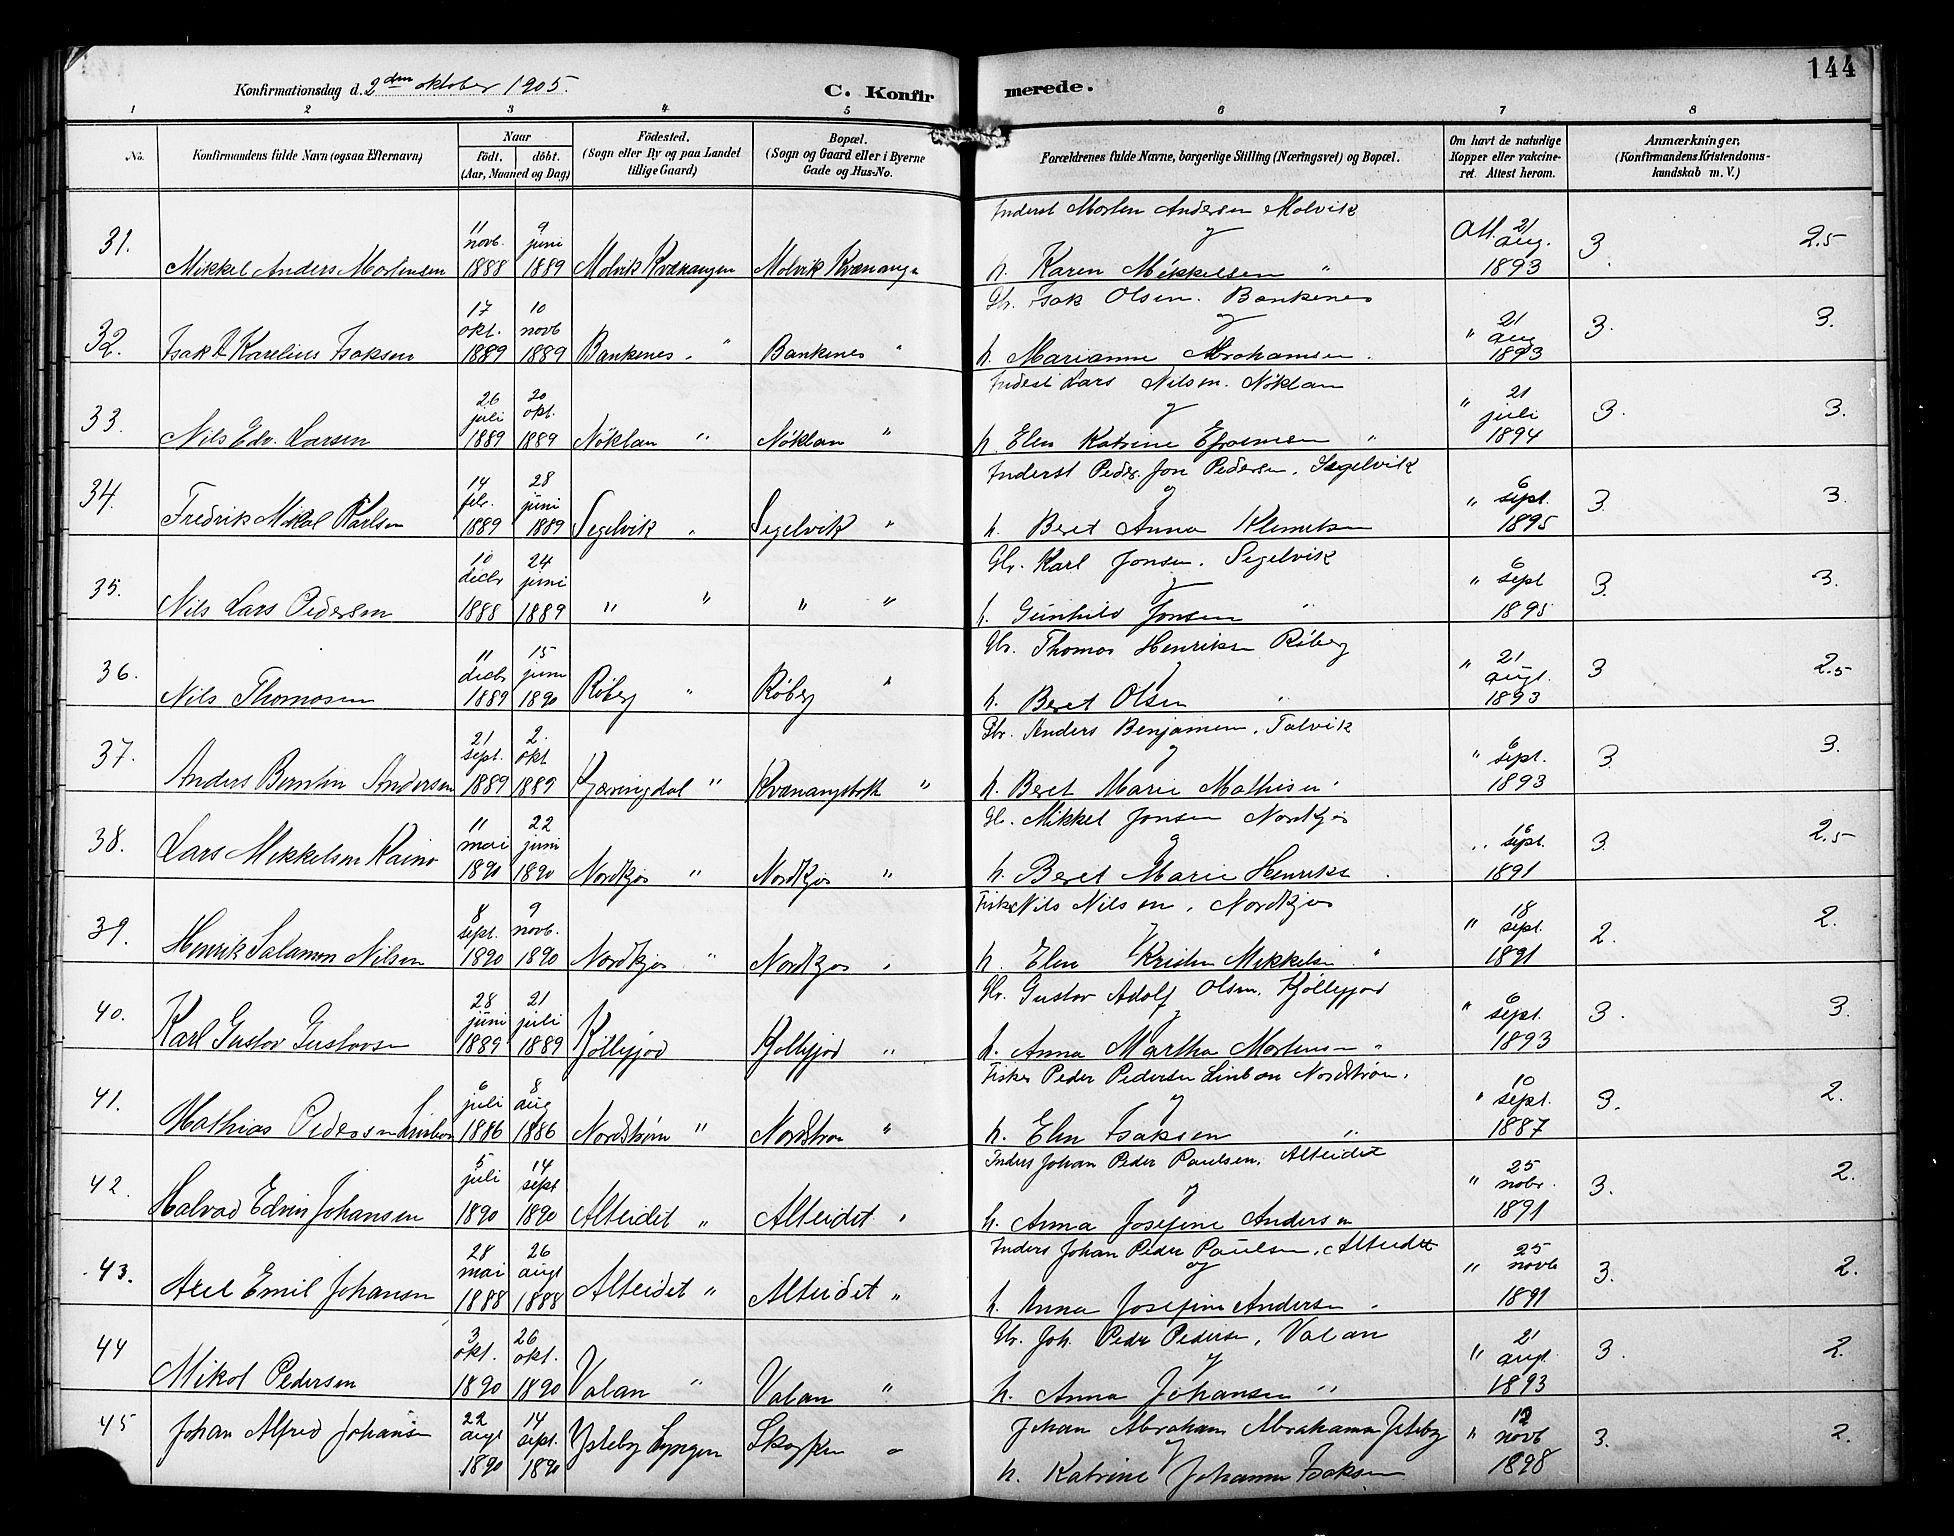 144
Konfirmationsdag d. 2den oktober 1905.
C. Konfirmerede.
1 2 3 4 5 6 7 8
No.
Konfirmandens fulde Navn (ogsaa Efternavn)
Naar
födt. döbt.
(Aar, Maaned og Dag)
Födested.
(Sogn eller By og paa Landet
tillige Gaard)
Bopæl.
(Sogn og Gaard eller i Byerne
Gade og Hus-No.
Forældrenes fulde Navne, borgerlige Stilling (Næringsvei) og Bopæl.
Om havt de naturlige
Kopper eller vakcine-
ret. Attest herom.
Anmærkninger,
(Konfirmandens Kristendoms-
kundskab m. V.)
31. Mikkel Anders Mortensen 11 novb. 1888 9 juni 1889 Molvik Kvænangen Molvik Kvænang
Inderst Morten Andersen Molvik
og
h. Karen Mikkelsen " Att. 21 aug. 1893 3. 2.5
32. Isak Karelius Isaksen 17 okt. 1889 10 novb 1889 Bankenes " Bankenes "
Gbr. Isak Olsen. Bankenes
og
h. Marianne Abrahamsen. " 21 aug 1893 3. 3.
33. Nils Edv. Larsen 26 juli 1889 20 okt. 1889 Nøklan " Nøklan "
Inderst Lars Nilsen. Nøklan
og
h. Elen Katrine Efraimsen " " 21 juli 1894 3. 3.
34. Fredrik Mikal Karlsen 14 febr. 1889 28 juni 1889 Segelvik " Segelvik "
Inderst Peder Jon Pedersen, Segelvik
og
h. Beret Anna Klemetsen " 6 sept. 1895 3 3.
35. Nils Lars Pedersen 10 decbr 1888 24 juni 1889 " " " "
Gbr. Karl Jonsen. Segelvik
og
h. Gunhild Jonsen " " 6 sept 1895 3. 3.
36. Nils Thomasen 11 decbr 1889 15 juni 1890 Røberg " Røberg "
Gbr. Thomas Henriksen Røberg
og
h. Beret Olsen " " 21 augt. 1893 3 2.5
37. Anders Berntin Andersen 21 sept. 1889 2. okt 1889 Kjæringdal " Kvænangsbotn "
Gbr. Anders Benjamin, Talvik
og
h. Beret Marie Mathisen " 6 sept. 1893 3 3.
38. Lars Mikkelsen Kaino 11 mai 1890 22 juni 1890 Nordkjos " Nordkjos "
Gbr. Mikkel Jonsen Nordkjos
og
h. Beret Marie Henriks " 16 sept. 1891 3. 2.5
39. Henrik Salamon Nilsen 8 sept. 1890 9 novb. 1890 Nordkjos " Nordkjos "
Fisker Nils Nilsen, Nordkjos
og
h. Elen Kristin Mikkelsen " " 18 sept. 1891 2. 2.
40. Karl Gustav Gustavsen 28 juni 1889 21 juli 1889 Kjøllefjord Kjøllefjord "
Gbr. Gustav Adolf Olsen, Kjøllefjord
og
h. Anna Martha Mortensen " " 6 sept. 1893 3. 3.
41. Mathias Pedersen 6 juli 1886 8 aug 1886 Nordstrøm " Nordstrøm "
Fisker Peder Pedersen Nordstrøm.
og
h. Elen Isaksen " " 10 sept. 1887 3. 2.
42. Halvad Edvin Johansen 5 juli 1890 14 sept 1890 Alteidet " Alteidet "
Inders Johan Peder Paulsen, Alteidet
og
h. Anna Josefine Andersen " 25 nobr. 1891 3. 2.
43. Axel Emil Johansen 28 mai 1888 26 augt 1888 Alteidet " Alteidet "
Inders Johan Peder Paulsen, Alteidet
og
h. Anna Josefine Andersen " " 25 novb 1891 3. 2.
44 Mikal Pedersen 3 okt. 1890 26 okt. 1890 Valan " Valan "
Gbr. Joh. Peder Pedersen, Valan
og
h. Anna Johansen " " 21 augt. 1893 3. 2.
45 Johan Alfred Johansen 22 augt 1890 14 sept. 1890 Ysteby Lyngen Skorpen "
Johan Abraham Abrahamsen Ysteby
og
h. Katrine Johanne Isaksen " 12 novb 1898 3. 2.